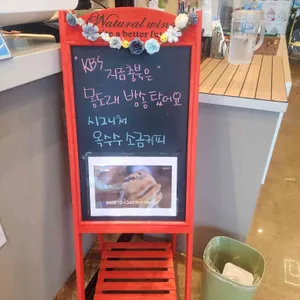 Natural wine
are a better fu
KBS
"지금출북은"
몽도래 방송탔어요
시그니처
옥수수소금커피